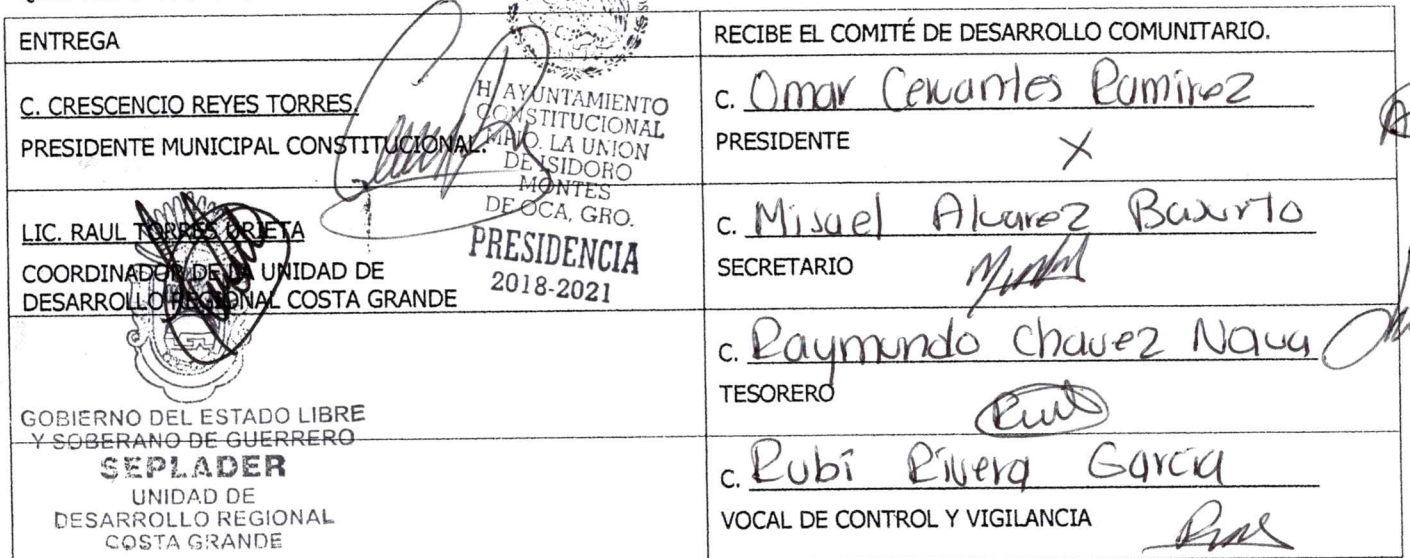 ENTREGA
C. CRESCENCIO REYES TORRES.
PRESIDENTE MUNICIPAL CONSTITUCIONAL.
H. AYUNTAMIENTO
CONSTITUCIONAL
MPIO. LA UNION
DE ISIDORO
MONTES
DE OCA, GRO.
PRESIDENCIA
2018-2021
LIC. RAUL TORRES URIETA
COORDINADOR DE LA UNIDAD DE
DESARROLLO REGIONAL COSTA GRANDE
GOBIERNO DEL ESTADO LIBRE
Y SOBERANO DE GUERRERO
SEPLADER
UNIDAD DE
DESARROLLO REGIONAL
COSTA GRANDE
RECIBE EL COMITÉ DE DESARROLLO COMUNITARIO.
C. Omar Cervantes Ramirez
PRESIDENTE
X
C. Misael Alvarez Baxurto
SECRETARIO
C. Raymundo Chavez Nava
TESORERO
C. Rubí Rivera Garcia
VOCAL DE CONTROL Y VIGILANCIA